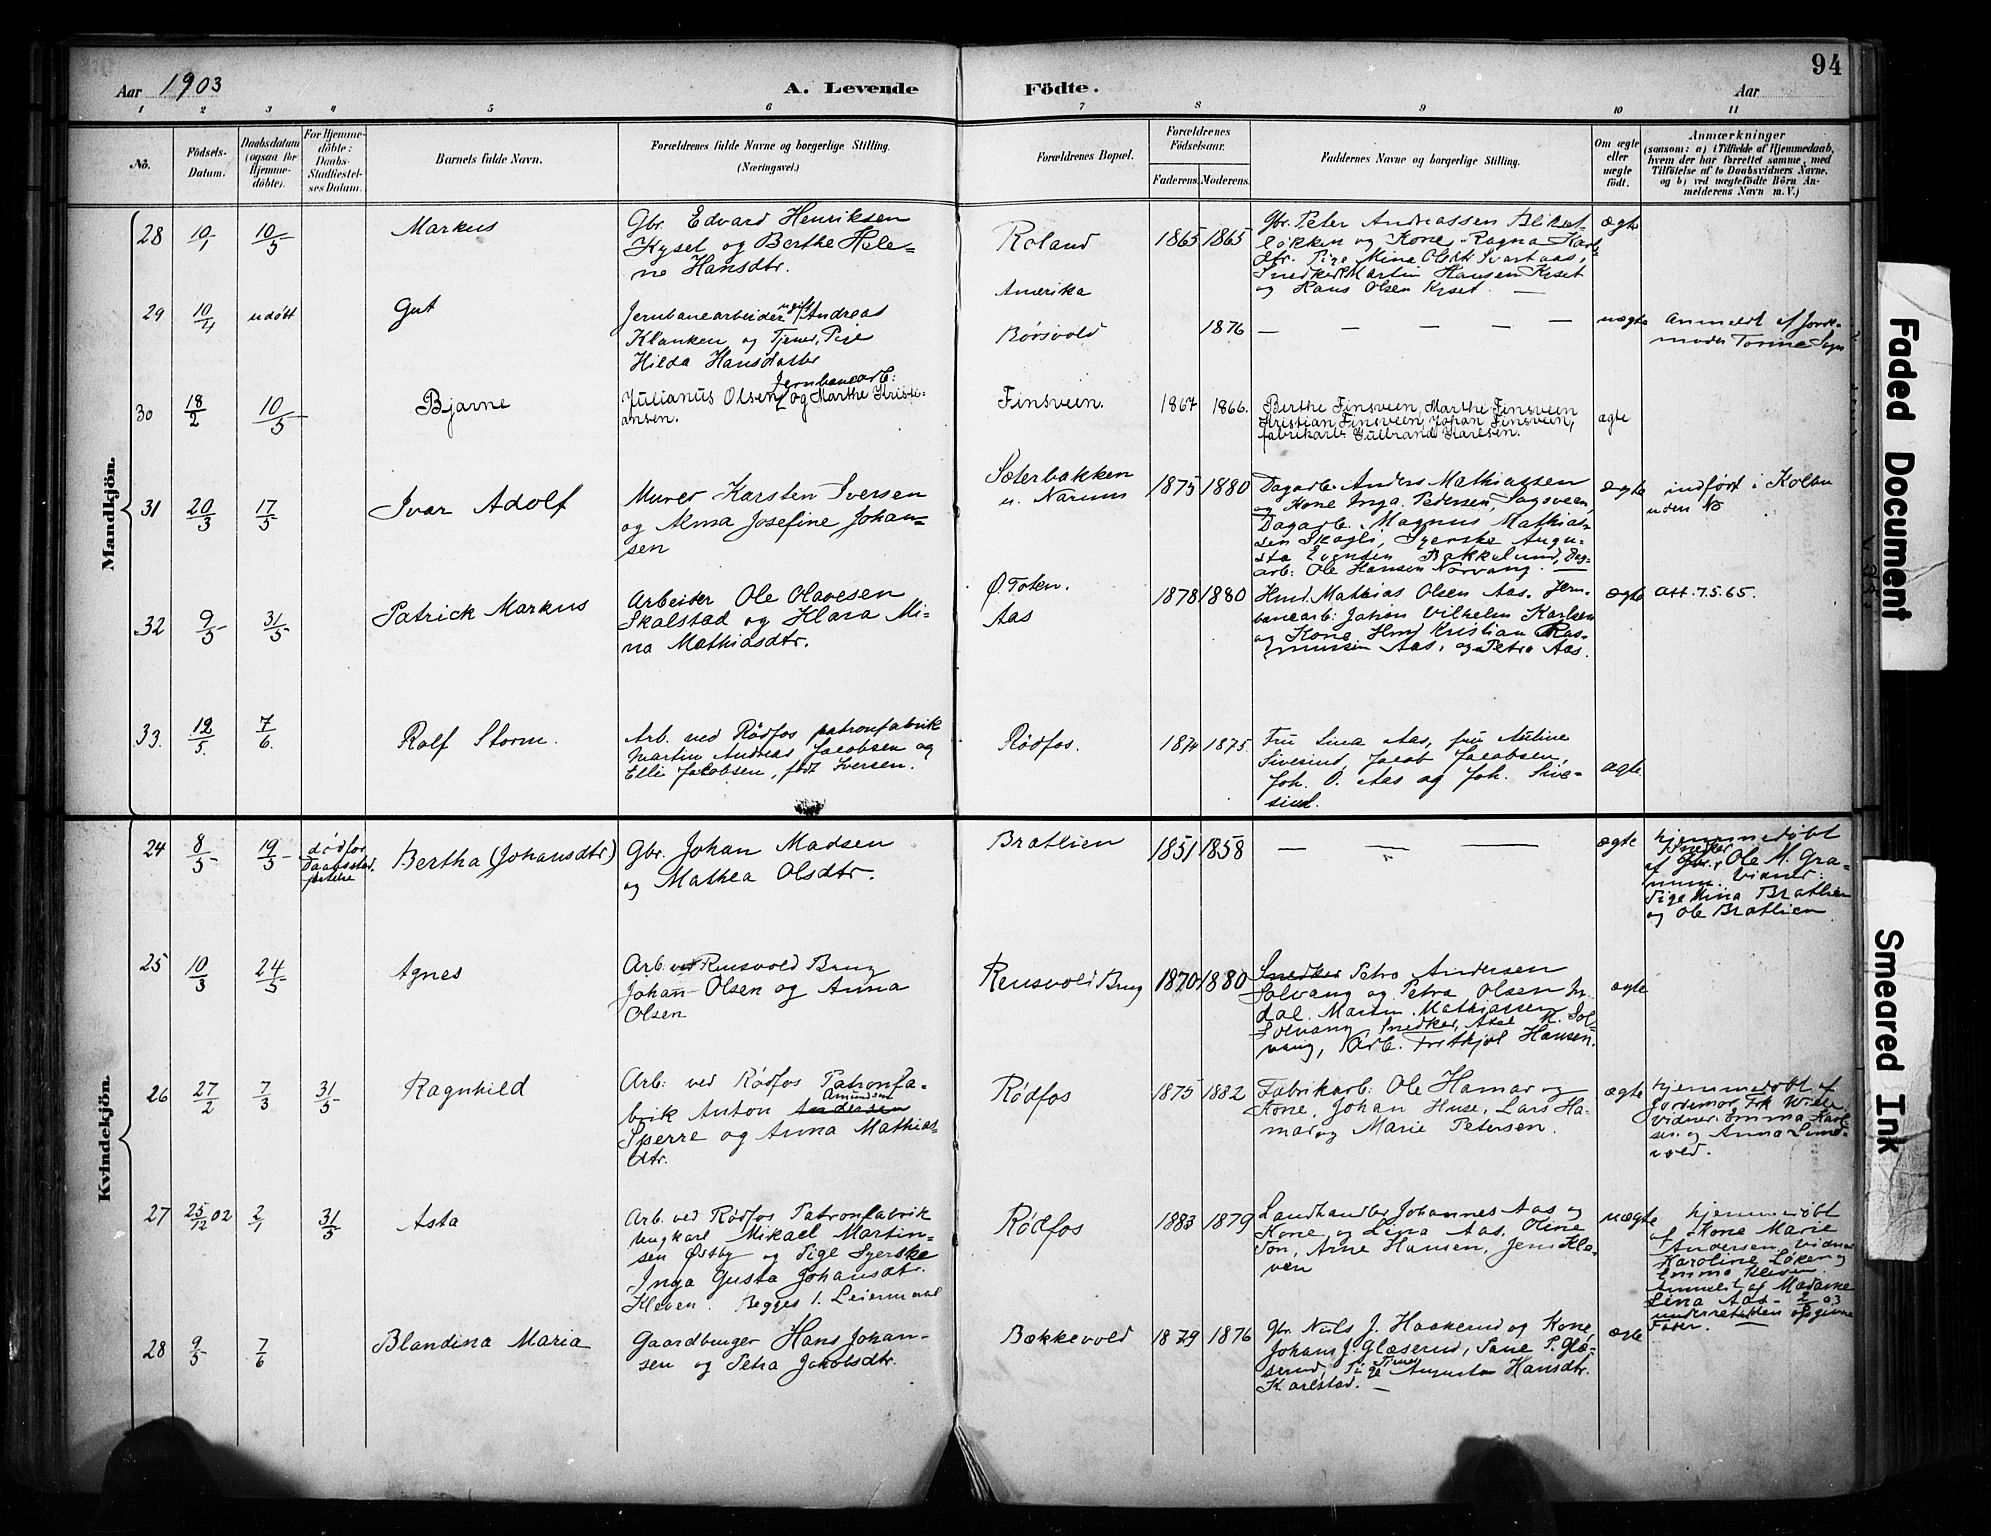 94
Aar 1903
A. Levende Födte.
Aar
1 2 3 4 5 6 7 8 9 10 11
No.
Födsels-
Datum.
Daabsdatum
(ogsaa for
Hjemme-
döbte).
For Hjemme-
döbte:
Daabs-
Stadfæstel-
ses Datum.
Barnets fulde Navn.
Forældrenes fulde Navne og borgerlige Stilling.
(Næringsvei.)
Forældrenes Bopæl.
Forældrenes
Födselsaar.
Faderens. Moderens.
Faddernes Navne og borgerlige Stilling.
Om ægte
eller
uægte
födt.
Anmærkninger
(saasom: a) i Tilfælde af Hjemmedaab,
hvem der har forrettet samme, med
Tilföielse af to Daabsvidners Navne,
og b) ved uægtefödte Börn An-
melderens Navn m. V.)
Mandkjön.
28 10/1 10/5
Markus
Gbr. Edvard Henriksen
Kyset og Berthe Hele-
ne Hansdtr.
Roland
1865 1865
Gbr. Peter Andreassen Blikset-
løkken og Kone, Ragna Karls-
dtr. Pige Mina Olsdtr Svartaas,
Snedker Martin Hansen Kyset
og Hans Olsen Kyset. —
ægte
29 10/4 udöbt
Gut
Jernbanearbeider ugift Andreas
Klanken og Tjener, Pige
Hilda Hansdatter
Amerika
Börsvold
1876
— — — — —
uægte
Anmeldt af Jord-
moder Torine
30 18/2 10/5
Bjarne
Jernbanearb:
Julianus Olsen og Marthe Kristi-
ansen.
Finsveen.
1867 1866.
Berthe Finsveen, Marthe Finsveen
Kristian Finsveen, Johan Finsveen,
fabrikarb. Gulbrand Karlsen.
ægte
31 20/3 17/5
Ivar Adolf
Murer Karsten Iversen
og Alma Josefine Johan-
sen
Sæterbakken
u. Narums
1875 1880
Dagarb. Anders Mathiassen
og Kone Inga Pedersen, Sagsveen,
Dagarb. Magnus Mathias-
sen Skogli, Syerske Augu-
sta Evensen Bakkelund, Dag-
arb: Ole Hansen Norvang.
ægte
indført i Kolbu
uden No
32 9/5 31/5
Patrick Markus
Arbeider Ole Olavesen
Skalstad og Klara Mi-
na Mathiasdtr.
Ø. Toten.
Aas
1878 1880
Hmd. Mathias Olsen Aas. Jern-
banearb: Johan Vilhelm Karlsen
og Kone, Hmd Kristian Ras-
mussen Aas, og Petra Aas.
ægte
Att. 7.5.65.
33. 12/5. 7/6.
Rolf Storm.
Arb. ved Rödfos patronfabrik
Martin Andreas Jacobsen og
Elli Jacobsen, født Iversen.
Rödfos.
1874 1875.
Fru Lina Aas, fru Auline
Sivesind, Jacob Jacobsen,
Joh. O. Aas og Joh. Sive-
sind.
ægte.
Kvindekjön.
24 8/5 19/5 död før
Daabsstad-
fæstelse
Bertha (Johansdtr)
Gbr. Johan Madsen
og Mathea Olsdtr.
Bratlien
1851 1858
— — —
ægte
hjemmedöbt
af Gbr. Snedker Ole M. Gra-
num. Vidner:
Pige Mina Bratlien
og Ole Bratlien.
25 10/3 24/5
Agnes
Arb. ved Reusvold Brug
Johan Olsen og Anna
Olsen
Reusvold Brug
1870 1880
Snedker Petro Andersen
Solvang og Petra Olsen
dal. Martin Mathiassen
Solvang, Snedker, Axel M. Sol-
vang, Arb. Fritthjof Hansen.
ægte
26 27/2 7/3 31/5
Ragnhild
Arb: ved Rödfos Patronfa-
brik Anton Andersen Amundsen
Sperre og Anna Mathias-
dtr.
Rödfos
1875 1882
Fabrikarb: Ole Hamar og
Kone, Johan Huse, Lars Ha-
mar og Marie Petersen.
ægte
hjemmedöbt af
Jordemor Frk Wiele.
Vidner: Emma Karl-
sen og Anna Lund-
vold.
27 25/12 02 2/1 31/5
Asta
Arb. ved Rødfos Patronfabrik
Ungkarl Mikael Martin-
sen Østby og Pige Syerske
Inga Gusta Johansdtr.
Kleven. Begges 1. Leiermaal
Rödfos
1883 1879
Landhandler Johannes Aas og
Kone og Lina Aas, Oline
Ton, Arne Hansen, Jens Kle-
ven
uægte
hjemmedöbt
af Kone Marie
Andersen, vidner
Karoline Løken og
Emma Kleven.
Anmeldt af Madame
Lina Aas 2/1 03
underretn
opgivne
Fader.
28 9/5 7/6
Blandina Maria
Gaardbruger Hans Johan-
sen og Petra Jakobsdtr.
Bækkevold
1879 1876
Gbr. Nils J. Haakerud og Kone,
Johans J. Glæserud, Sane P. Glæ-
serud, Pige Tjener Augusta Hansdtr.
Karlstad. —
ægte
Faded Document
Smeared Ink